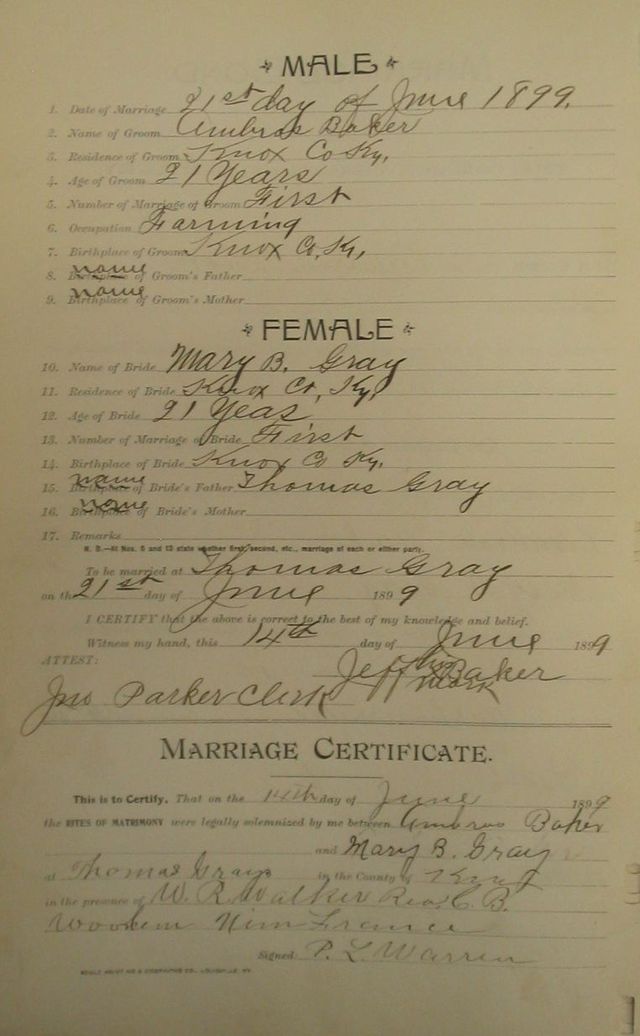 MALE
1. Date of Marriage 21st day of June 1899.
2. Name of Groom Ambras Baker
3. Residence of Groom Knox Co Ky,
4. Age of Groom 21 Years
5. Number of Marriage of Groom First
6. Occupation Farming
7. Birthplace of Groom Knox Co, Ky,
name
8. Birthplace of Groom's Father
name
9. Birthplace of Groom's Mother
FEMALE
10. Name of Bride Mary B. Gray
11. Residence of Bride Knox Co, Ky,
12. Age of Bride 21 Yeas
13. Number of Marriage of Bride First
14. Birthplace of Bride Knox Co Ky,
name
15. Birthplace of Bride's Father Thomas Gray
name
16. Birthplace of Bride's Mother
17. Remarks
N. B.—At Nos. 5 and 13 state whether first, second, etc., marriage of each or either party.
To be married at Thomas Gray
on the 21st day of June 1899
I CERTIFY that the above is correct to the best of my knowledge and belief.
Witness my hand, this 14th day of June 1899
ATTEST:
his
Jeff Baker
mark
Jno Parker Clerk
MARRIAGE CERTIFICATE.
This is to Certify, That on the 14th day of June 1899
the RITES OF MATRIMONY were legally solemnized by me between Ambras Baker
and Mary B. Gray
at Thomas Grays in the County of Knox
in the presence of W. R. Walker Rev. C. B.
Signed P. L. Warren